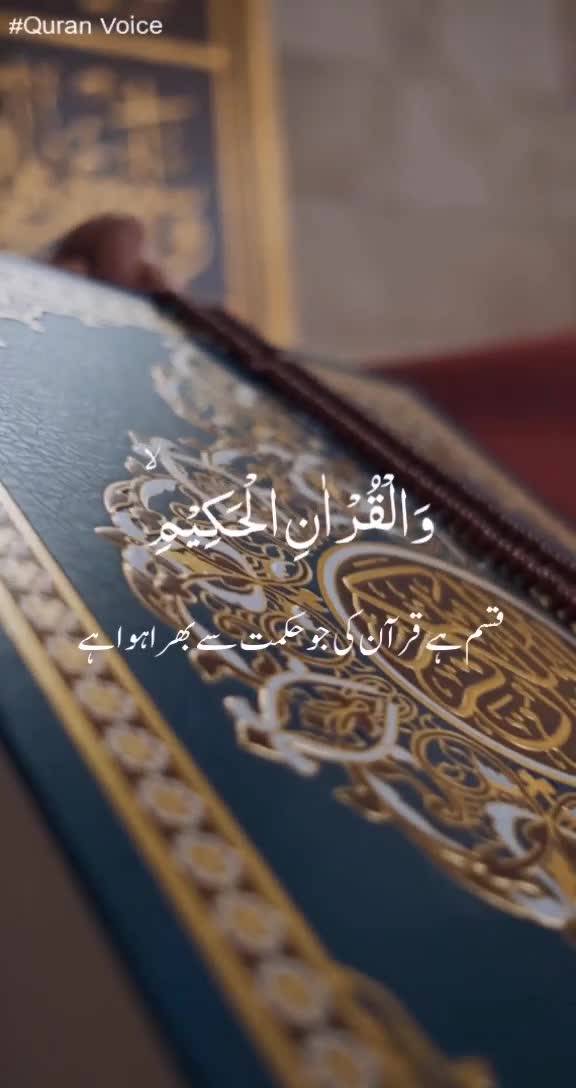 #Quran Voice
وَالْقُرْاٰنِ الْحَكِيْمِۙ
قسم ہے قرآن کی جو حکمت سے بھرا ہوا ہے